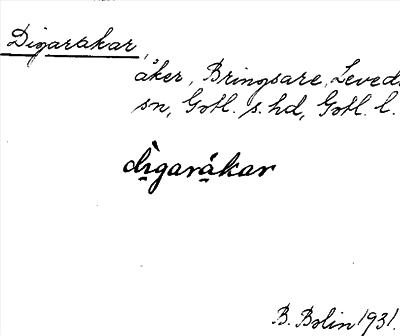 Digarakar,
åker, Bringsare, Levede
sn, Gotl. s. hd, Gotl. l.
dìgarákar
B. Bolin 1931.